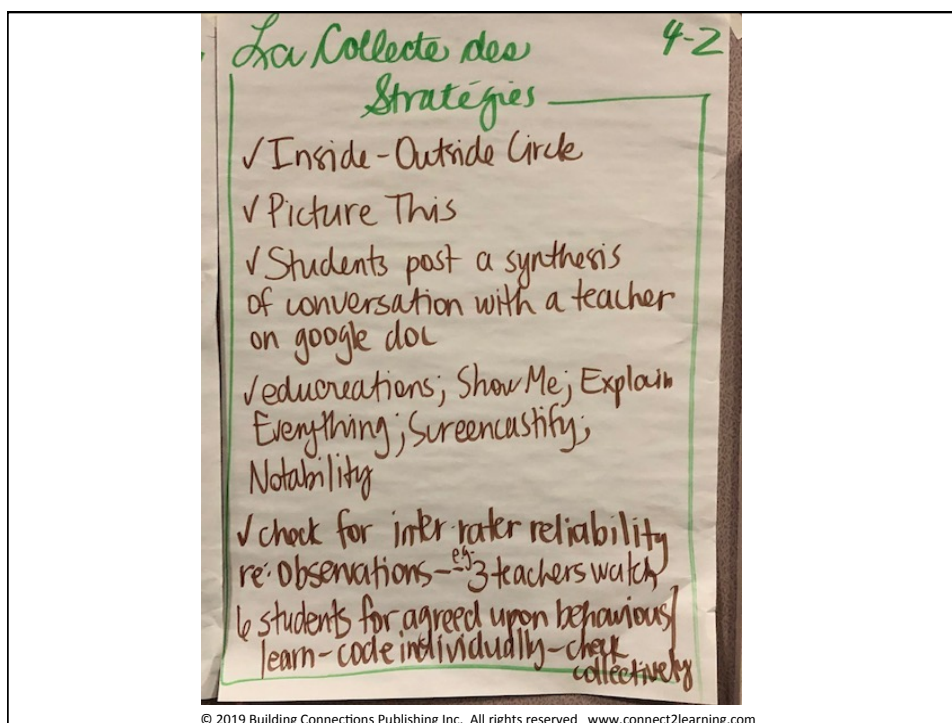 La Collecte des 4-2
Stratégies
✓ Inside-Outside Circle
✓ Picture This
✓ Students post a synthesis
of conversation with a teacher
on google doc
✓ educreations; Show Me; Explain
Everything; Screencastify;
Notability
✓ check for inter-rater reliability
re: observations - eg. 3 teachers watch
6 students for agreed upon behaviours/
learn - code individually - check
collectively
© 2019 Building Connections Publishing Inc. All rights reserved. www.connect2learning.com